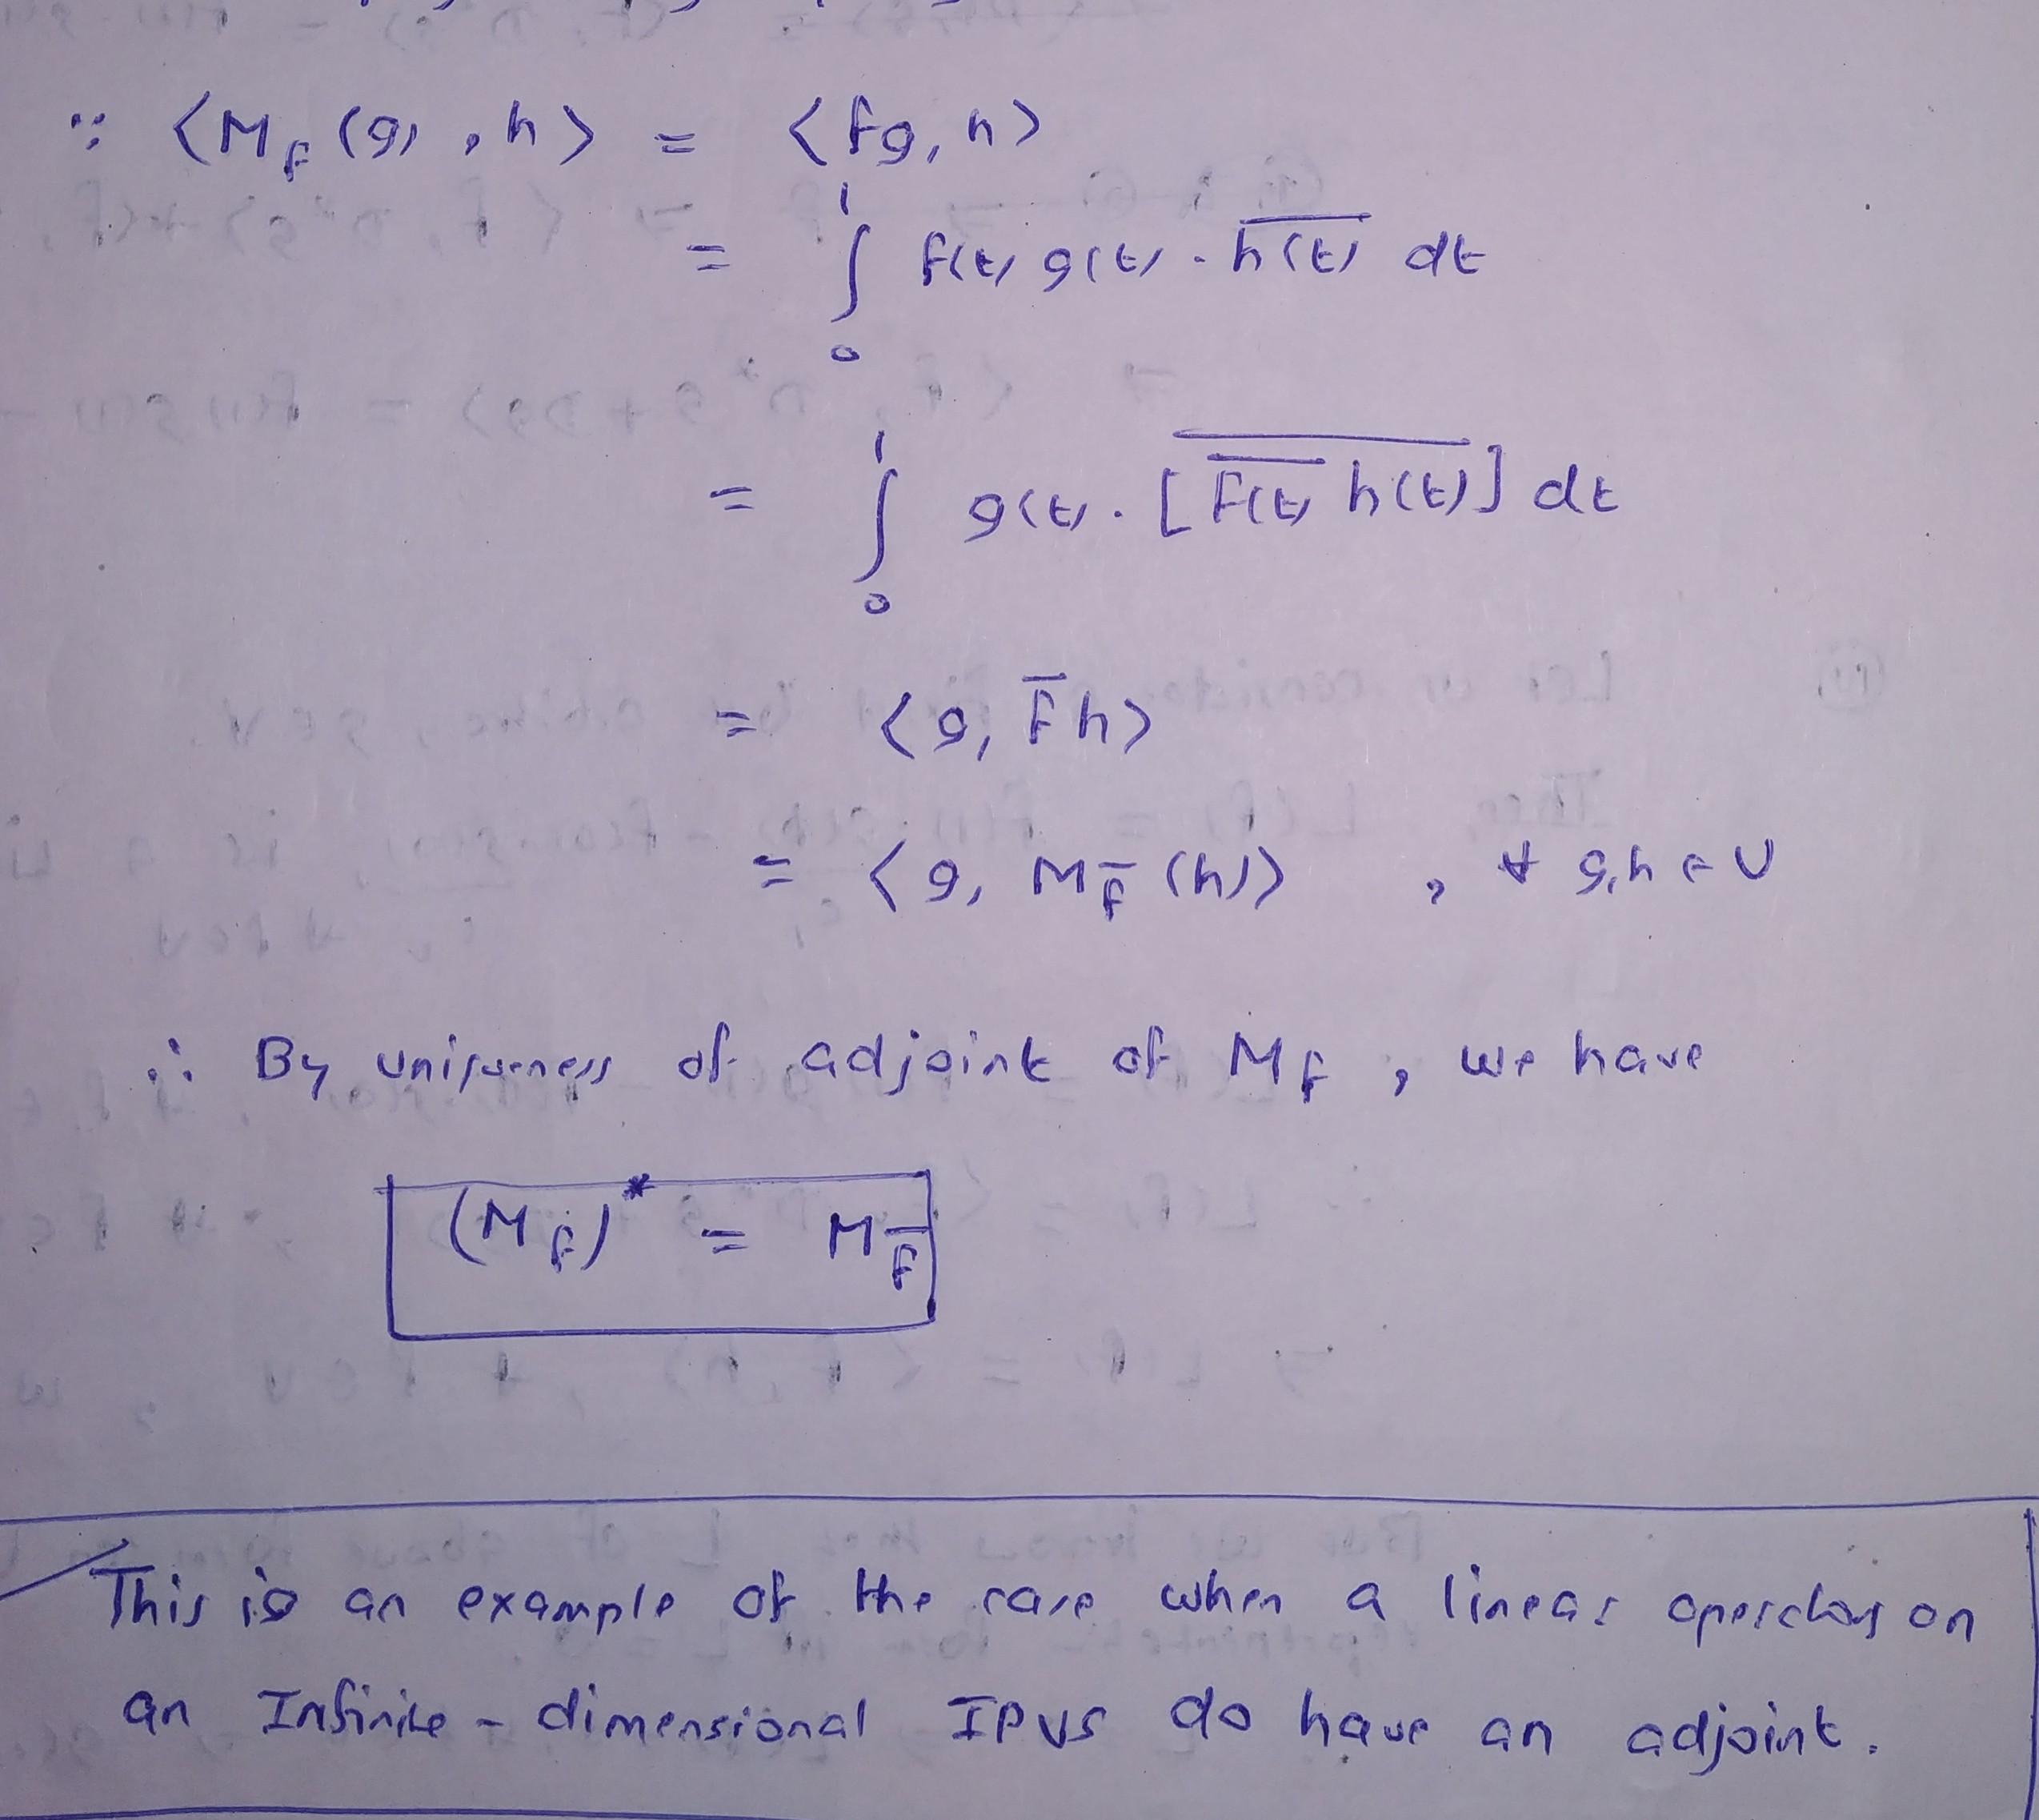 ∵ ⟨M_f (g) , h⟩ = ⟨fg, h⟩
= ∫₀¹ f(t) g(t) · \overline{h(t)} dt
= ∫₀¹ g(t) · \overline{[\overline{f(t)} h(t)]} dt
= ⟨g, \overline{f} h⟩
= ⟨g, M_{\overline{f}} (h)⟩ , ∀ g,h ∈ V
∴ By uniqueness of adjoint of M_f , we have
(M_f)* = M_{\overline{f}}
This is an example of the case when a linear operator on
an Infinite - dimensional IPVS do have an adjoint.